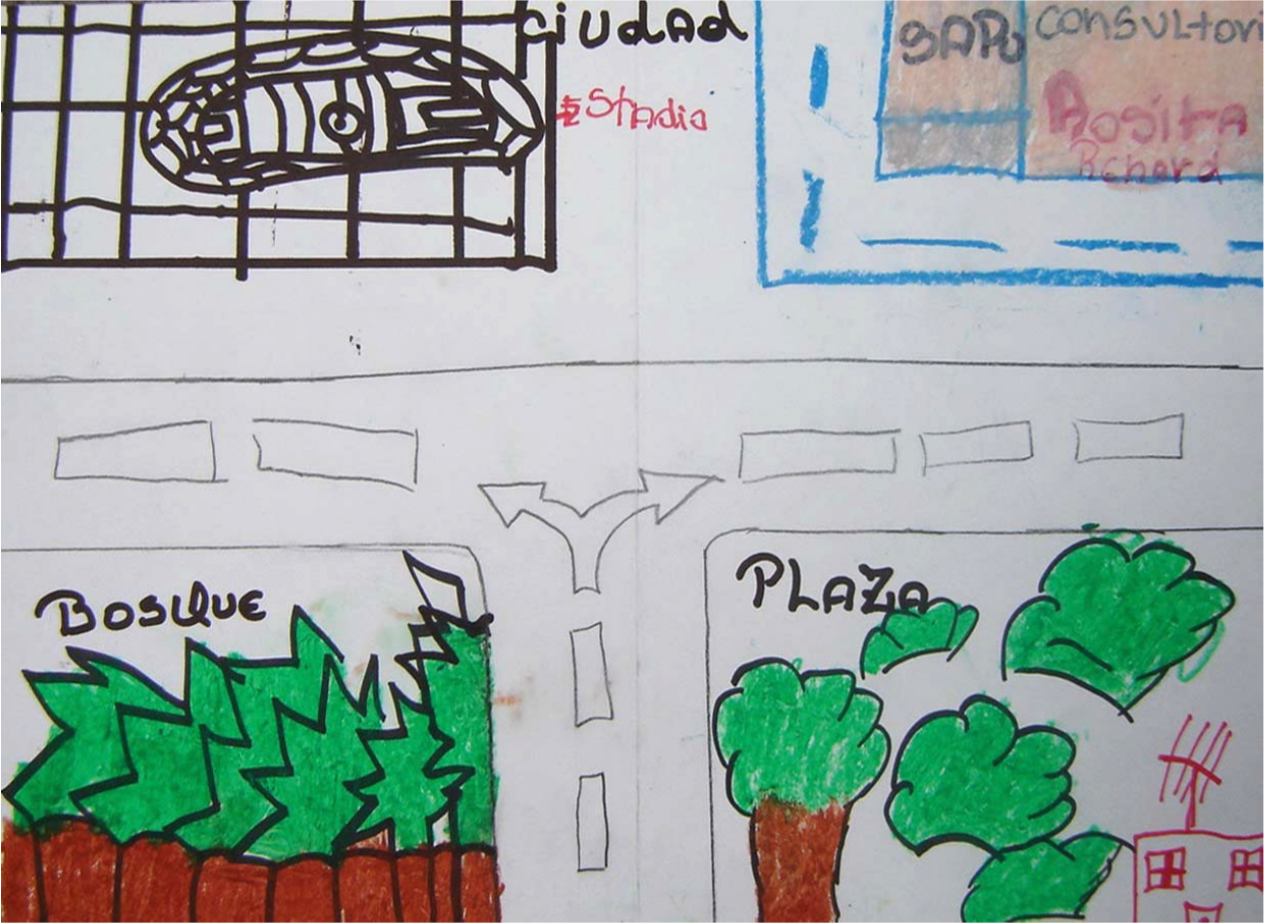 CiUdAd
EStAdio
SAPU
CONSULtori
Rosita
Renard
BOSQUE
PLAZA